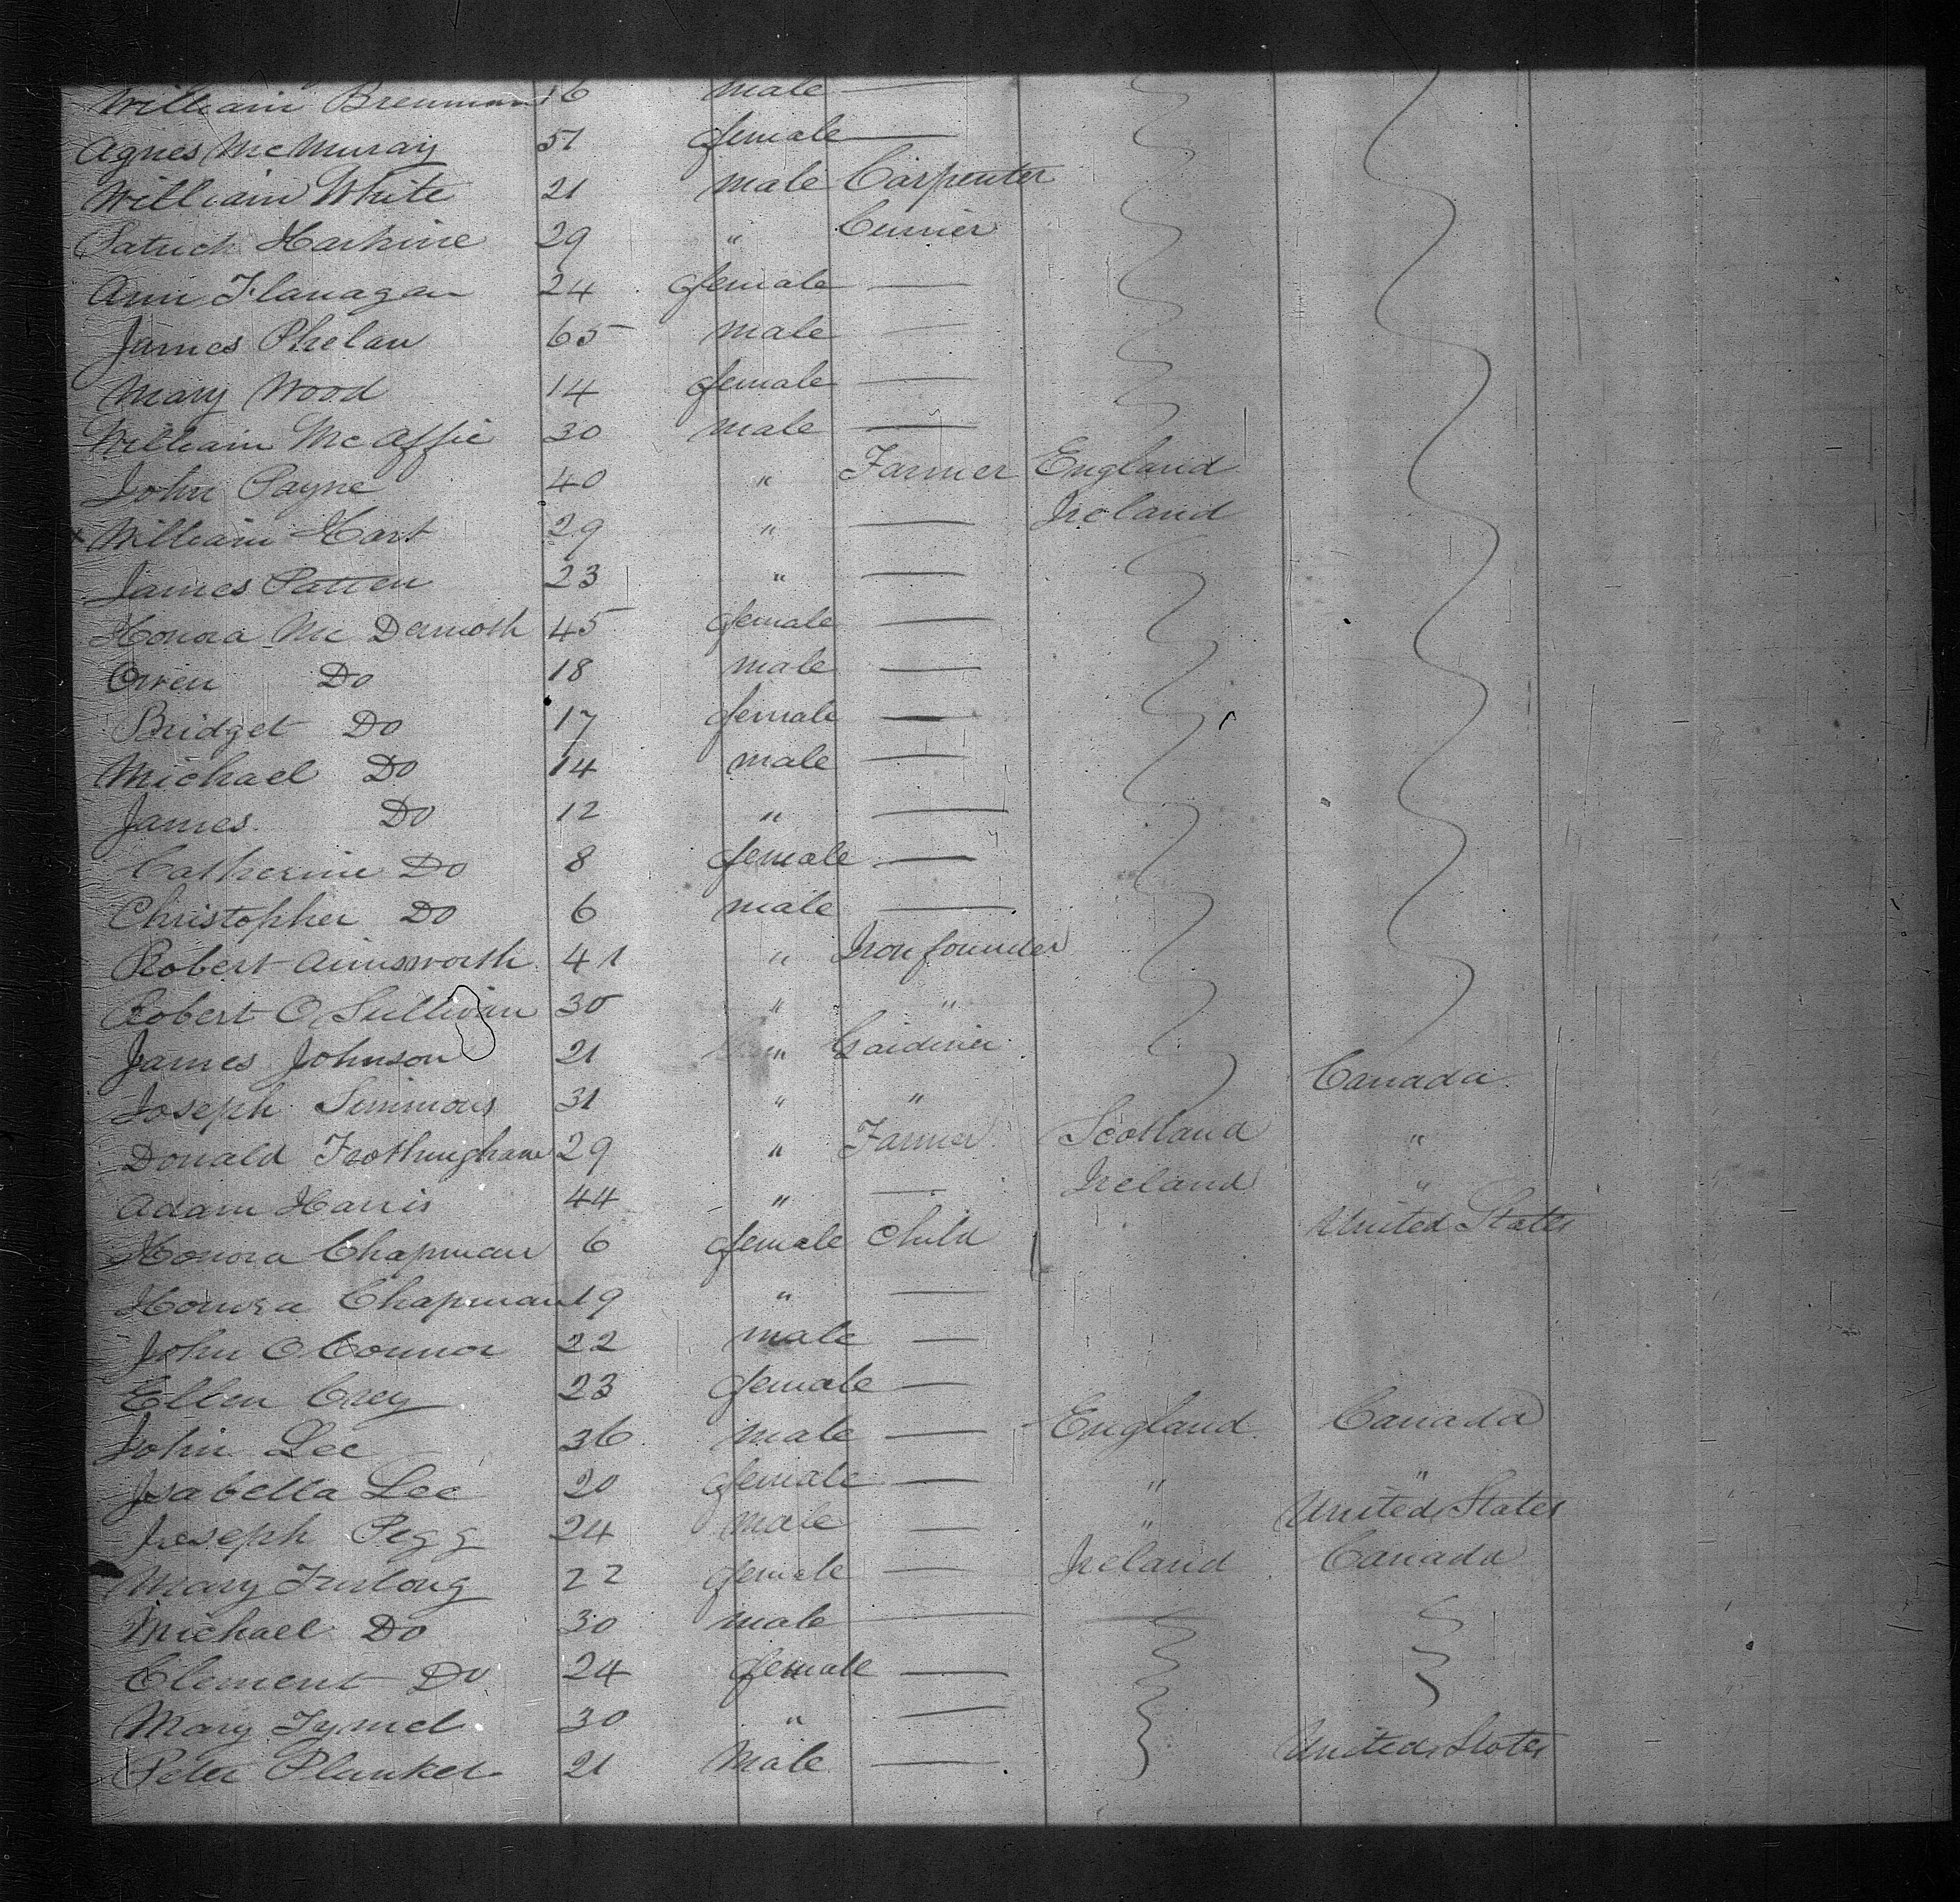 William Brennan 16 male —
Agnes McMuray 51 female —
William White 21 male Carpenter
Patrick Harkine 29 " Currier
Ann Flanagan 24 female —
James Phelan 65 male —
Mary Wood 14 female —
William McAffie 30 male —
John Payne 40 " Farmer England
William Hart 29 " — Ireland
James Patten 23 " —
Honora Mc Dermoth 45 female —
Owen Do 18 male —
Bridget Do 17 female —
Michael Do 14 male —
James Do 12 " —
Catherine Do 8 female —
Christopher Do 6 male —
Robert Ainsworth 41 " Iron founder
Robert O Sullivan 30 " "
James Johnson 21 " Gardiner
Joseph Simmons 31 " " Canada
Donald Frothingham 29 " Farmer Scotland "
Adam Harris 44 " — Ireland "
Honora Chapman 6 female Child United States
Honora Chapman 19 " —
John O Connor 22 male —
Ellen Grey 23 female —
John Lee 36 male — England Canada
Isabella Lee 20 female — " "
Joseph Pegg 24 male — " United States
Mary Furlong 22 female — Ireland Canada
Michael Do 30 male —
Clement Do 24 female —
Mary 30 " —
Peter Plunket 21 Male — United States